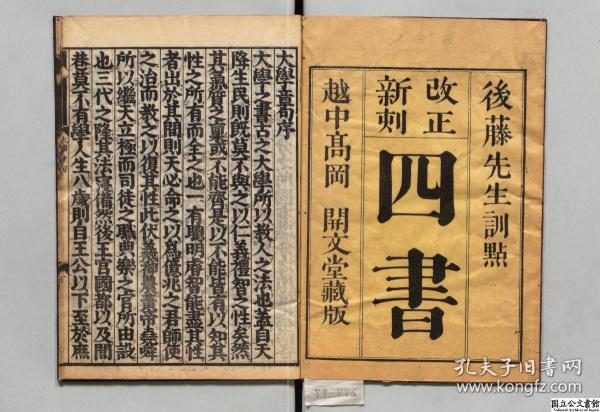 後藤先生訓點
改正
新刻
四書
越中高岡 開文堂藏版
大學章句序
大學之書古之大學所以教人之法也蓋自天
降生民則既莫不與之以仁義禮智之性矣然
其氣質之稟或不能齊是以不能皆有以知其
性之所有而全之也一有聰明睿智能盡其性
者出於其間則天必命之以爲億兆之君師使
之治而教之以復其性此伏羲神農黃帝堯舜
所以繼天立極而司徒之職典樂之官所由設
也三代之隆其法寖備然後王宮國都以及閭
巷莫不有學人生八歲則自王公以下至於庶
孔夫子旧书网
www.kongfz.com
国立公文書館
National Archives of Japan